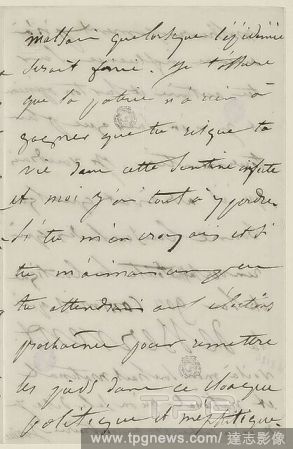 mettant que lorsque l'épidémie
serait finie. Je t'assure
que la patrie n'a rien à
gagner que tu risque ta
vie dans cette sentine infecte
et moi j'ai tout à y perdre.
Si tu m'en croyais et si
tu m'aimais un peu
tu attendrais aux élections
prochaines pour remettre
les pieds dans ce cloaque
politique et méphitique.
TPG
www.tpgnews.com / 達志影像